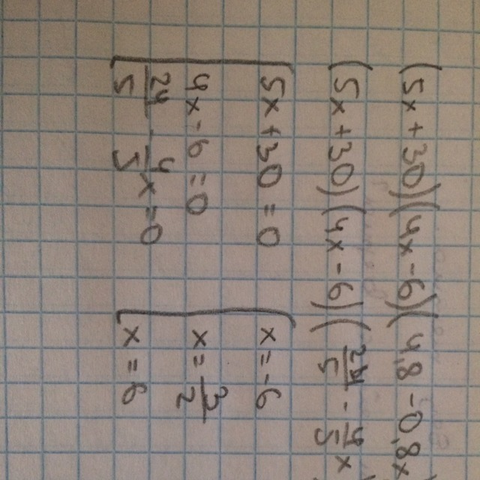 (5x+30)(4x-6)(4,8-0,8x
(5x+30)(4x-6)(24/5-4/5x
5x+30=0 x=-6
4x-6=0 x=3/2
24/5-4/5x=0 x=6